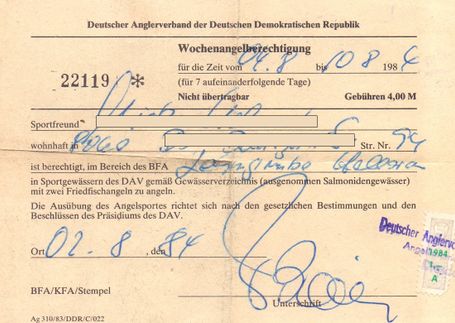 Deutscher Anglerverband der Deutschen Demokratischen Republik
Wochenangelberechtigung
für die Zeit vom 04.8 bis 10 8 1984
22119 * (für 7 aufeinanderfolgende Tage)
Nicht übertragbar Gebühren 4,00 M
Sportfreund
wohnhaft in Str. Nr.
ist berechtigt, im Bereich des BFA
in Sportgewässern des DAV gemäß Gewässerverzeichnis (ausgenommen Salmonidengewässer)
mit zwei Friedfischangeln zu angeln.
Die Ausübung des Angelsportes richtet sich nach den gesetzlichen Bestimmungen und den
Beschlüssen des Präsidiums des DAV.
Deutscher Anglerv
Ange
1984
A
Ort 02. 8 , den 84
BFA/KFA/Stempel
Unterschrift
Ag 310/83/DDR/C/022